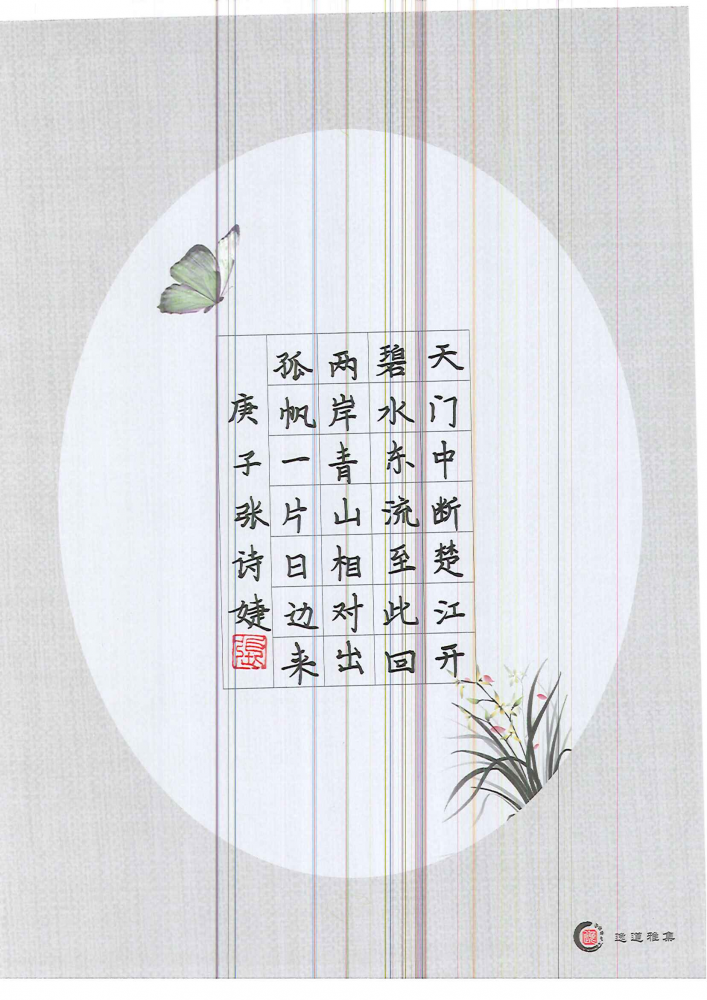 天门中断楚江开
碧水东流至此回
两岸青山相对出
孤帆一片日边来
庚子张诗婕
張
逸道雅集